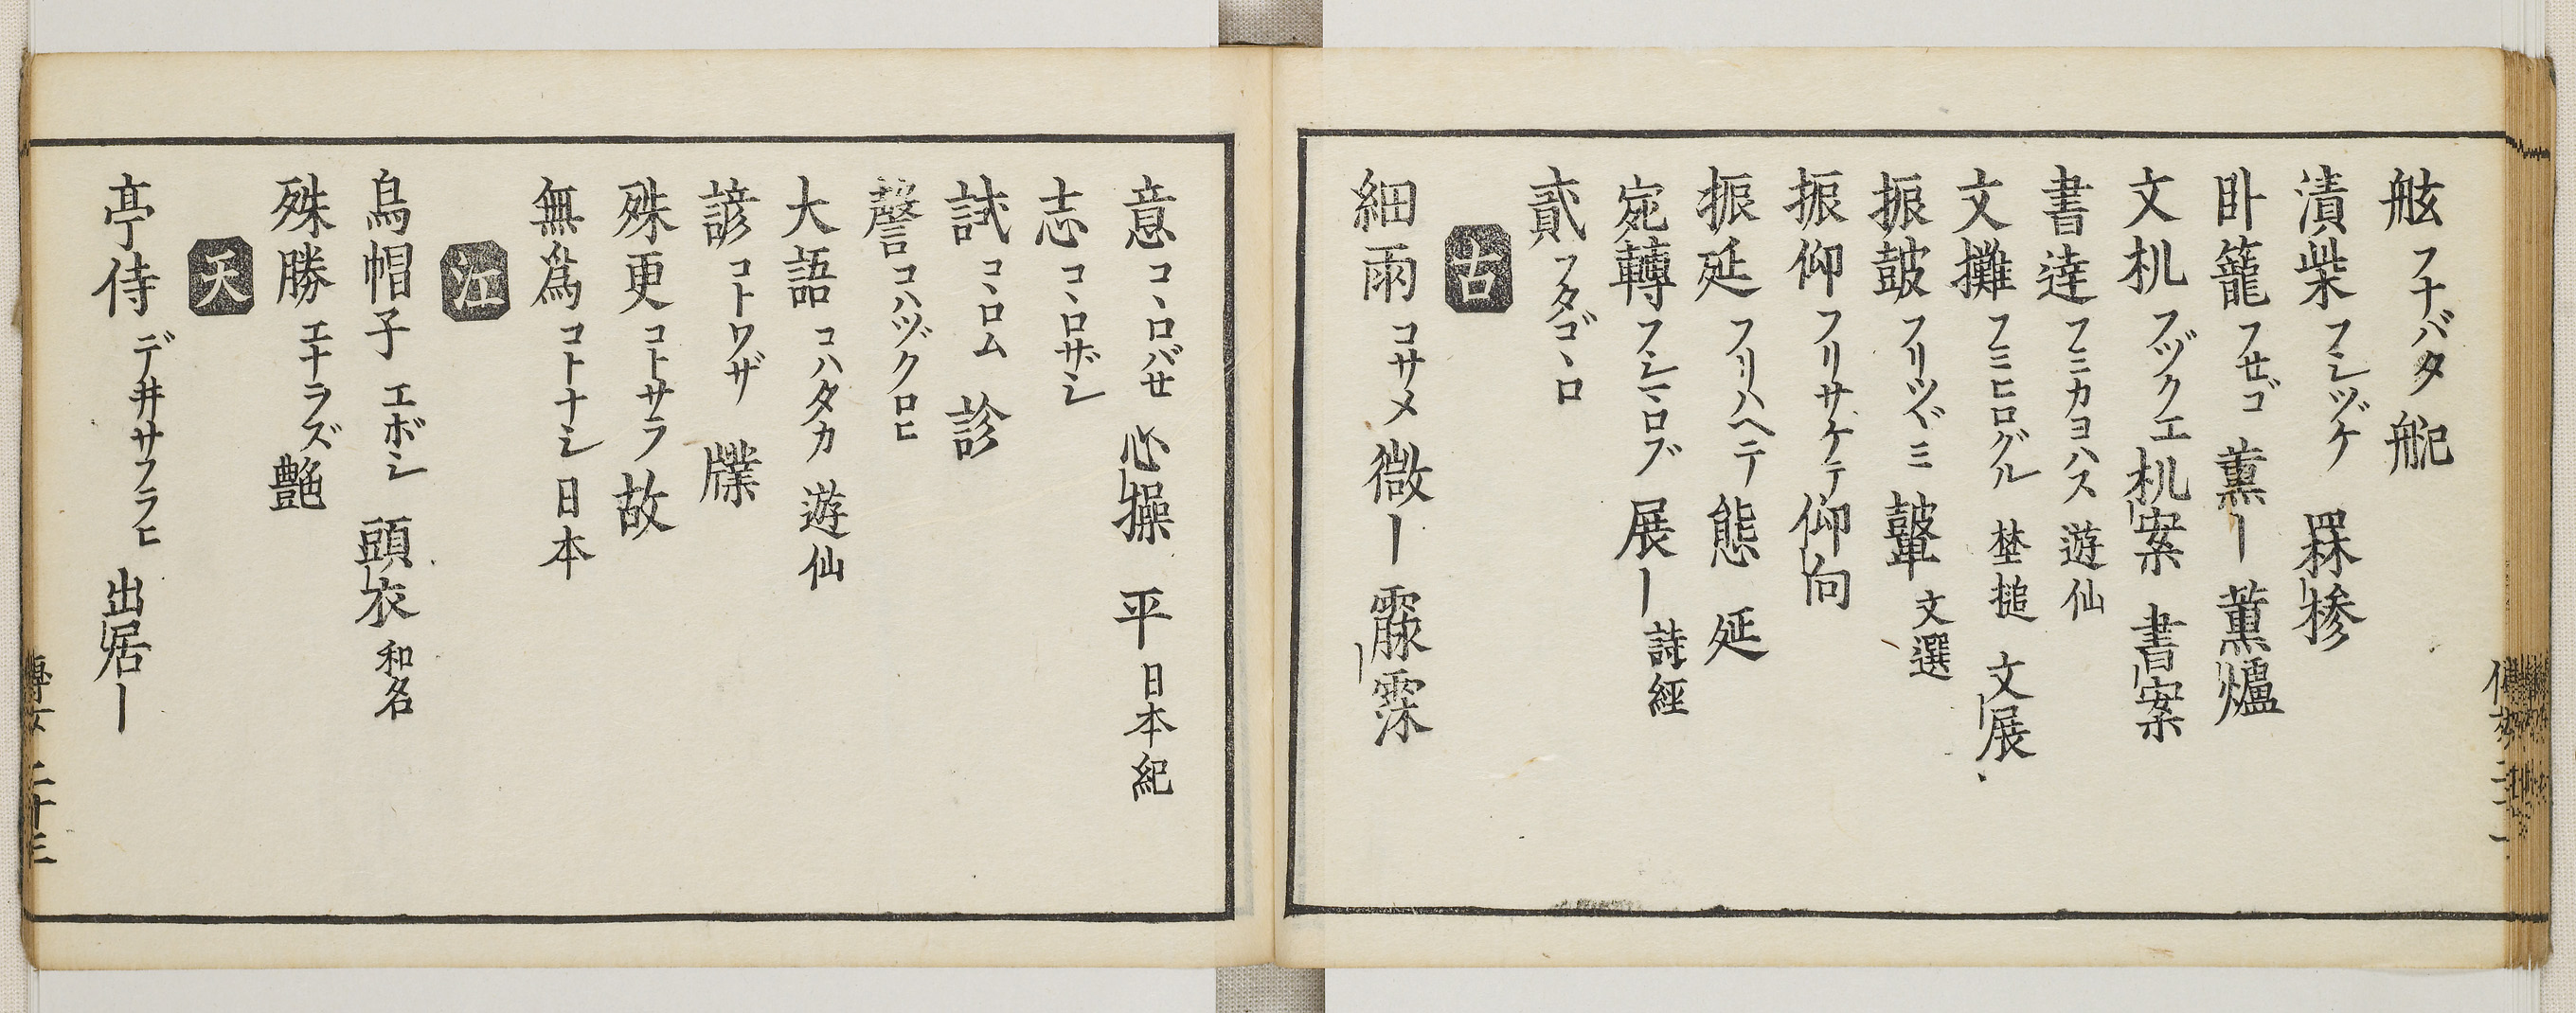 舷フナバタ 舥
漬柴フシヅケ 罧椮
臥籠フセゴ 薫ー 薫爐
文机フヅクエ 机案 書案
書達フミカヨハス 遊仙
文攤フミヒログル 埜槌 文展
振皷フリツヾミ 鼙 文選
振仰フリサケテ 仰向
振延フリハヘテ 態 延
宛轉フシマロブ 展ー 詩經
貳フタゴヽロ
古
細雨コサメ 微ー 霢霂
意コヽロバセ 心操 平 日本紀
志コヽロザシ
試コヽロム 診
謦コハヅクロヒ
大語コハタカ 遊仙
諺コトワザ 牒
殊更コトサラ 故
無爲コトナシ 日本
江
烏帽子エボシ 頭衣 和名
殊勝エナラズ 艷
天
亭侍デ井サフラヒ 出居ー
二十三